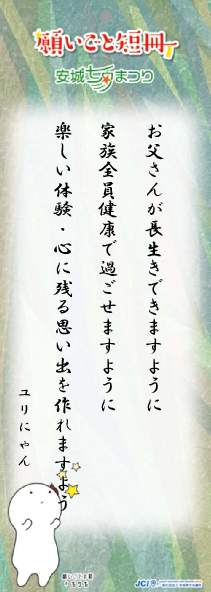 願いごと短冊
安城七夕まつり
お父さんが長生きできますように
家族全員健康で過ごせますように
楽しい体験・心に残る思い出を作れますよう
ユリにゃん
JCI